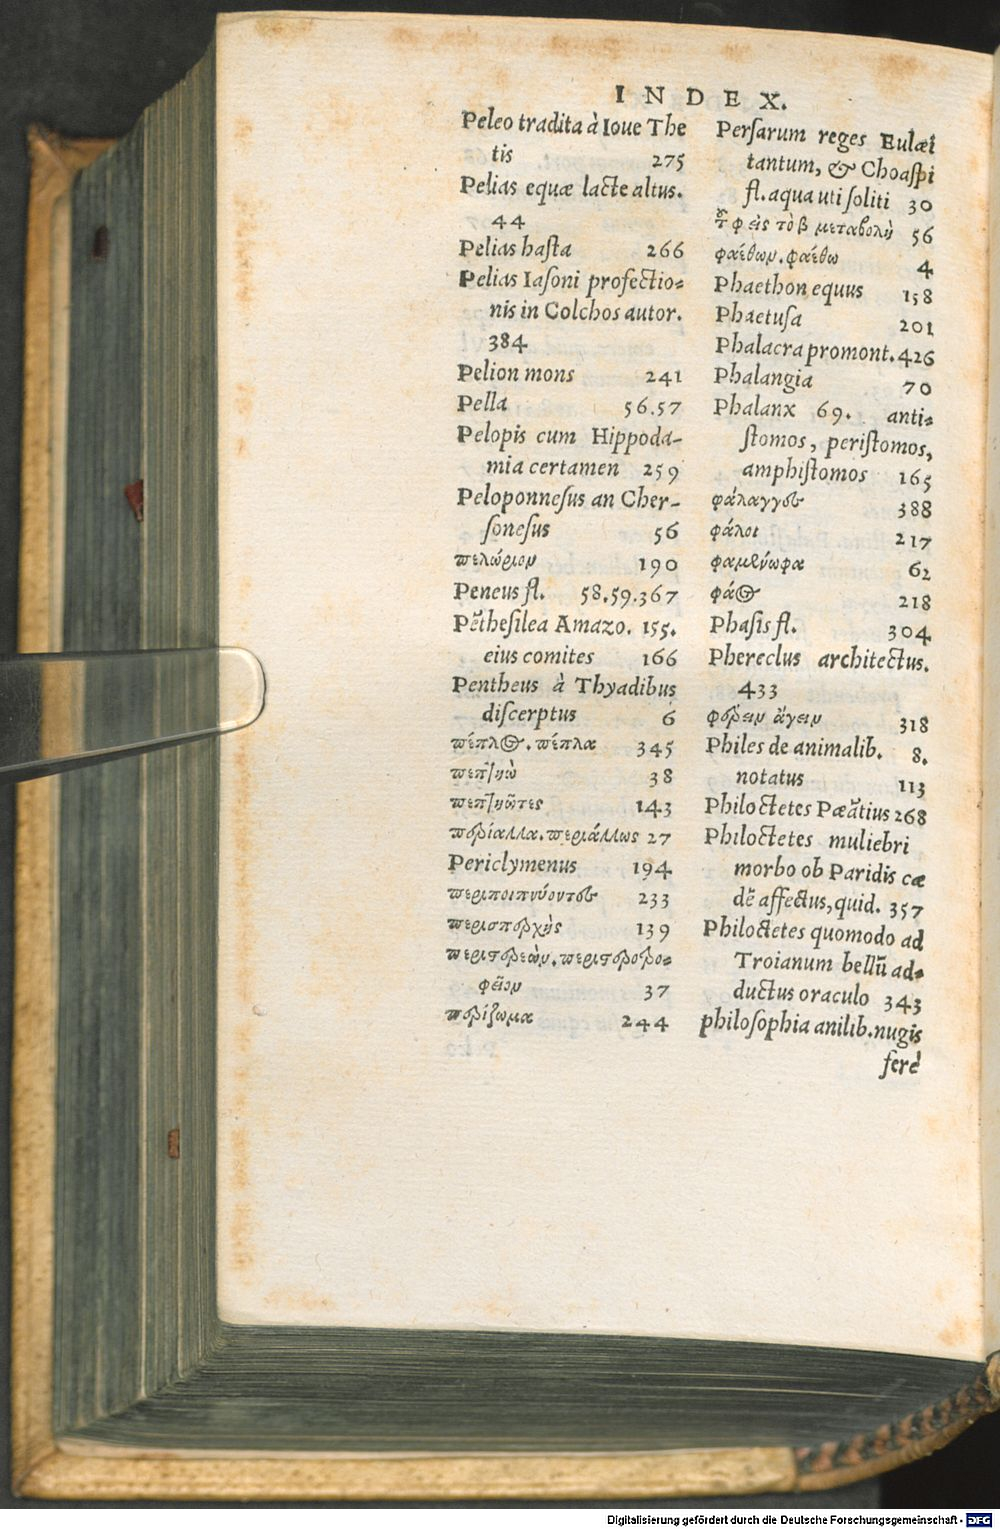 INDEX.
Peleo tradita à Ioue The
tis 275
Pelias equæ lacte altus.
44
Pelias hasta 266
Pelias Iasoni profectio-
nis in Colchos autor.
384
Pelion mons 241
Pella 56.57
Pelopis cum Hippoda-
mia certamen 259
Peloponnesus an Cher-
sonesus 56
πελώριον 190
Peneus fl. 58.59.367
Pẽthesilea Amazo. 155.
eius comites 166
Pentheus à Thyadibus
discerptus 6
πέπλος. πέπλα 345
πεπτηὼ 38
πεπτηῶτες 143
περίαλλα. περιάλλως 27
Periclymenus 194
περιποιπνύοντες 233
περισπερχὴς 139
περιστερεὼν. περιστερο-
φεῖον 37
περίζωμα 244
Persarum reges Eulæi
tantum, & Choaspi
fl. aqua uti soliti 30
φ εἰς τὸ β μεταβολὴ 56
φαέθων. φαέθω 4
Phaethon equus 158
Phaetusa 201
Phalacra promont. 426
Phalangia 70
Phalanx 69. anti-
stomos, peristomos,
amphistomos 165
φάλαγγες 388
φάλοι 217
φαμενώφα 62
φάος 218
Phasis fl. 304
Phereclus architectus.
433
φέρειν ἄγειν 318
Philes de animalib. 8.
notatus 113
Philoctetes Pæãtius 268
Philoctetes muliebri
morbo ob Paridis cæ
dẽ affectus, quid. 357
Philoctetes quomodo ad
Troianum bellũ ad-
ductus oraculo 343
philosophia anilib. nugis
ferè
Digitalisierung gefördert durch die Deutsche Forschungsgemeinschaft - DFG